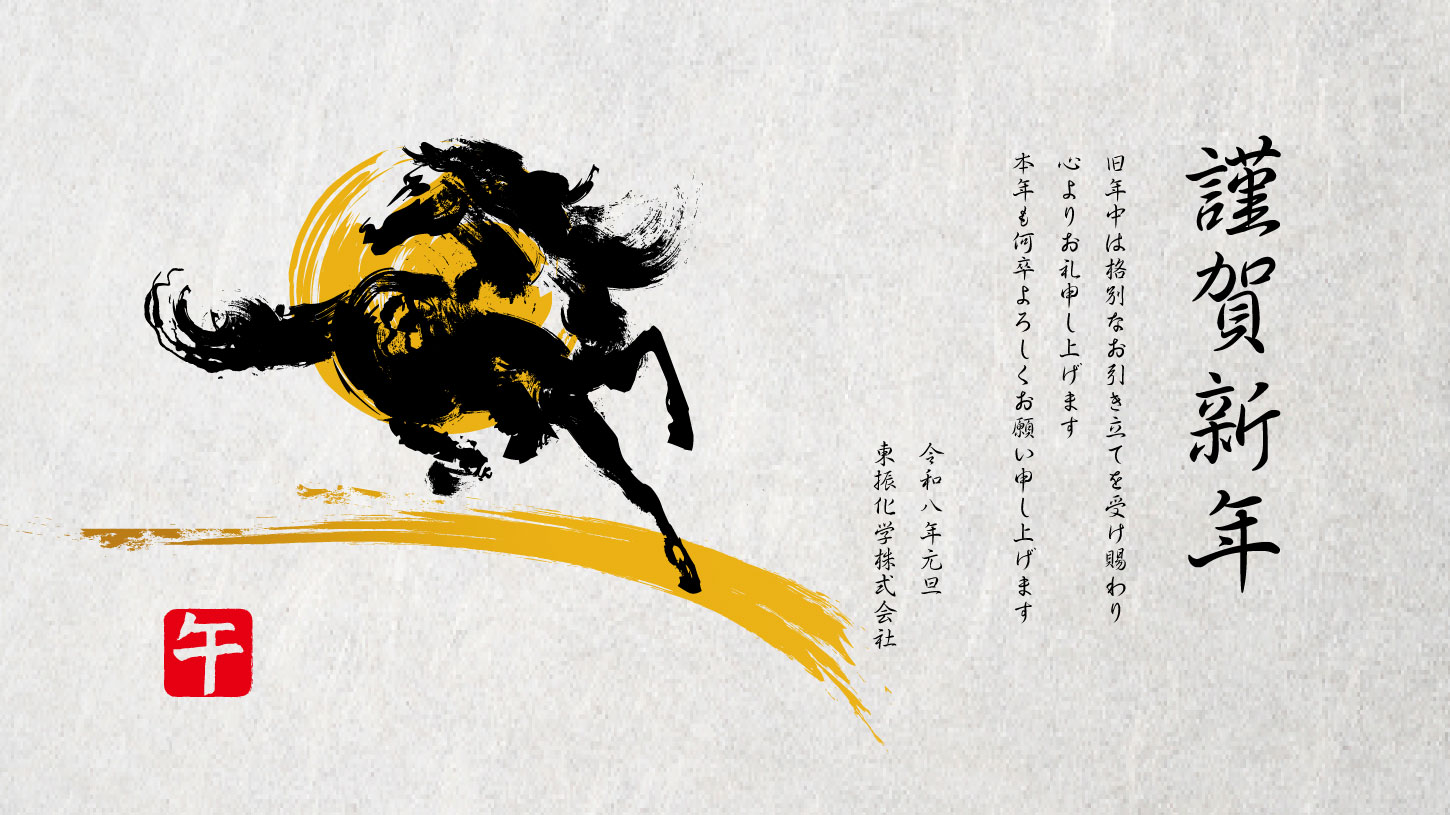 謹賀新年
旧年中は格別なお引き立てを受け賜わり
心よりお礼申し上げます
本年も何卒よろしくお願い申し上げます
令和八年元旦
東振化学株式会社
午